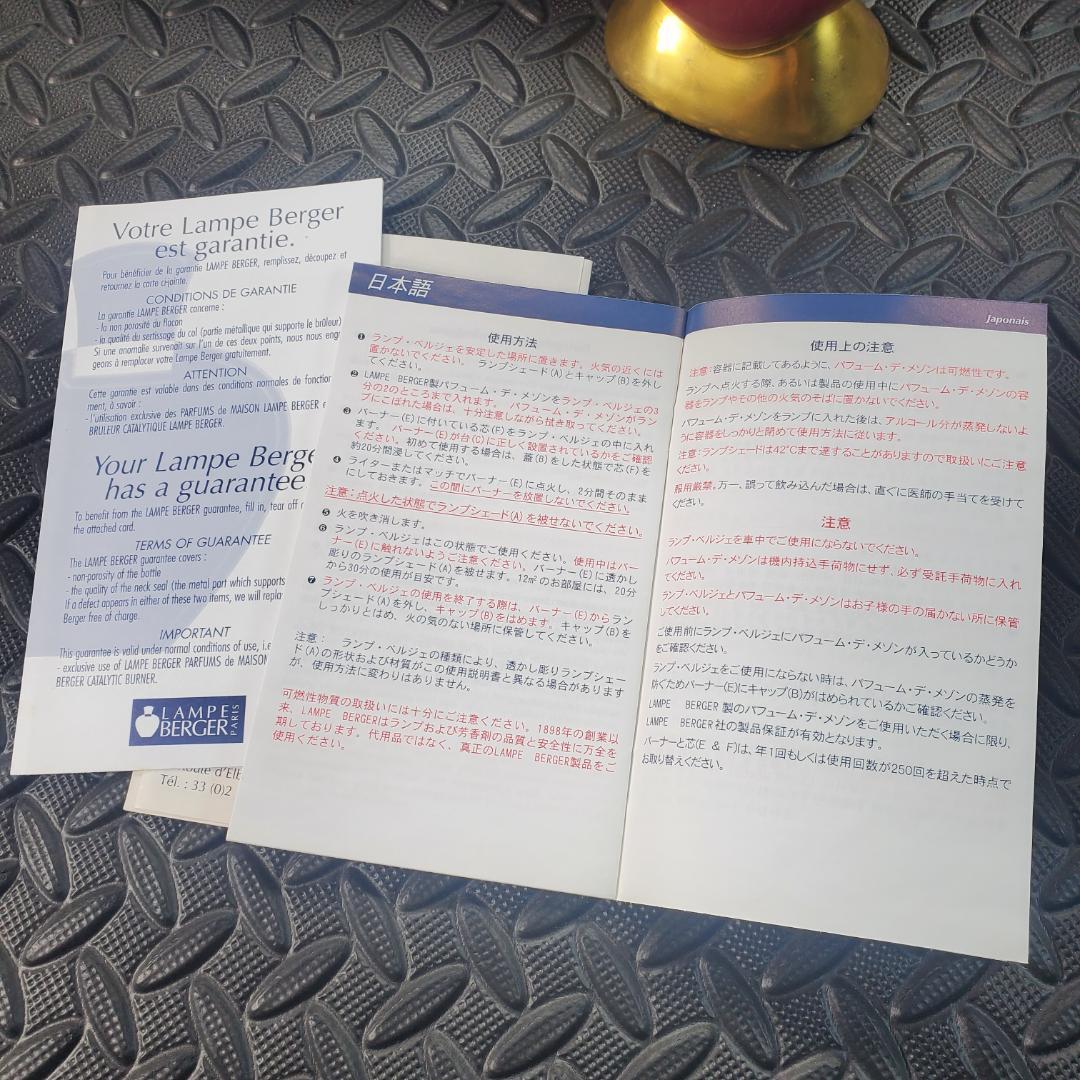 Votre Lampe Berger
est garantie.
Pour bénéficier de la garantie LAMPE BERGER, remplissez, découpez et
retournez la carte ci-jointe.
CONDITIONS DE GARANTIE
La garantie LAMPE BERGER concerne :
- la non porosité du flacon
- la qualité du sertissage du col (partie métallique qui supporte le brûleur)
Si une anomalie survenait sur l'un de ces deux points, nous nous eng
geons à remplacer votre Lampe Berger gratuitement.
ATTENTION
Cette garantie est valable dans des conditions normales de fonction
ment, à savoir :
- l'utilisation exclusive des PARFUMS de MAISON LAMPE BERGER e
BRULEUR CATALYTIQUE LAMPE BERGER.
Your Lampe Berge
has a guarantee
To benefit from the LAMPE BERGER guarantee, fill in, tear off
the attached card.
TERMS OF GUARANTEE
The LAMPE BERGER guarantee covers :
- non-porosity of the bottle
- the quality of the neck seal (the metal part which supports
If a defect appears in either of these two items, we will repla
Berger free of charge.
IMPORTANT
This guarantee is valid under normal conditions of use, i.e
- exclusive use of LAMPE BERGER PARFUMS de MAISON
BERGER CATALYTIC BURNER.
LAMPE
BERGER
PARIS
Tél. : 33 (0)2
日本語
使用方法
❶ ランプ・ベルジェを安定した場所に置きます。火気の近くには
置かないでください。 ランプシェード(A)とキャップ(B)を外し
てください。
❷ LAMPE BERGER製パフューム・デ・メゾンをランプ・ベルジェの3
分の2のところまで入れます。 パフューム・デ・メゾンがラン
プにこぼれた場合は、十分注意しながら拭き取ってください。
❸ バーナー(E)に付いている芯(F)をランプ・ベルジェの中に入れ
ます。 バーナー(E)が台(C)に正しく設置されているかをご確認
ください。初めて使用する場合は、蓋(B)をした状態で芯(F)を
約20分間浸してください。
❹ ライターまたはマッチでバーナー(E)に点火し、2分間そのまま
にしておきます。この間にバーナーを放置しないでください。
注意：点火した状態でランプシェード(A)を被せないでください。
❺ 火を吹き消します。
❻ ランプ・ベルジェはこの状態でご使用ください。使用中はバー
ナー(E)に触れないようご注意ください。バーナー(E)に透かし
彫りのランプシェード(A)を被せます。12㎡のお部屋には、20分
から30分の使用が目安です。
❼ ランプ・ベルジェの使用を終了する際は、バーナー(E)からラン
プシェード(A)を外し、キャップ(B)をはめます。キャップ(B)を
しっかりとはめ、火の気のない場所に保管してください。
注意： ランプ・ベルジェの種類により、透かし彫りランプシェー
ド(A)の形状および材質がこの使用説明書と異なる場合があります
が、使用方法に変わりはありません。
可燃性物質の取扱いには十分にご注意ください。1898年の創業以
来、LAMPE BERGERはランプおよび芳香剤の品質と安全性に万全を
期しております。代用品ではなく、真正のLAMPE BERGER製品をご
使用ください。
Japonais
使用上の注意
注意:容器に記載してあるように、パフューム・デ・メゾンは可燃性です。
ランプへ点火する際、あるいは製品の使用中にパフューム・デ・メゾンの容
器をランプやその他の火気のそばに置かないでください。
パフューム・デ・メゾンをランプに入れた後は、アルコール分が蒸発しないよ
うに容器をしっかりと閉めて使用方法に従います。
注意:ランプシェードは42℃まで達することがありますので取扱いにご注意
ください。
服用厳禁。万一、誤って飲み込んだ場合は、直ぐに医師の手当てを受けて
ください。
注意
ランプ・ベルジェを車中でご使用にならないでください。
パフューム・デ・メゾンは機内持込手荷物にせず、必ず受託手荷物に入れ
てください。
ランプ・ベルジェとパフューム・デ・メゾンはお子様の手の届かない所に保管
してください。
ご使用前にランプ・ベルジェにパフューム・デ・メゾンが入っているかどうか
をご確認ください。
ランプ・ベルジェをご使用にならない時は、パフューム・デ・メゾンの蒸発を
防ぐためバーナー(E)にキャップ(B)がはめられているかご確認ください。
LAMPE BERGER 製のパフューム・デ・メゾンをご使用いただく場合に限り、
LAMPE BERGER 社の製品保証が有効となります。
バーナーと芯(E & F)は、年1回もしくは使用回数が250回を超えた時点で
お取り替えください。